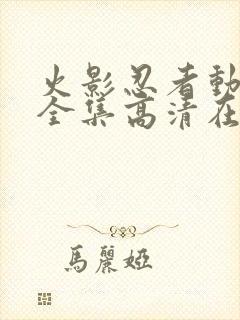 火影忍者動
全集高清在
馬麗婭